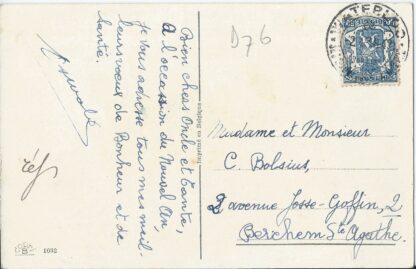 Bien chers Oncle et Tante,
A l'occasion du Nouvel An,
je vous adresse tous mes meil-
leurs vœux de Bonheur et de
Santé.
D76
Imprimé en Belgique
Madame et Monsieur
C. Bolsius,
2 avenue Josse-Goffin, 2
Berchem Ste Agathe.
1032